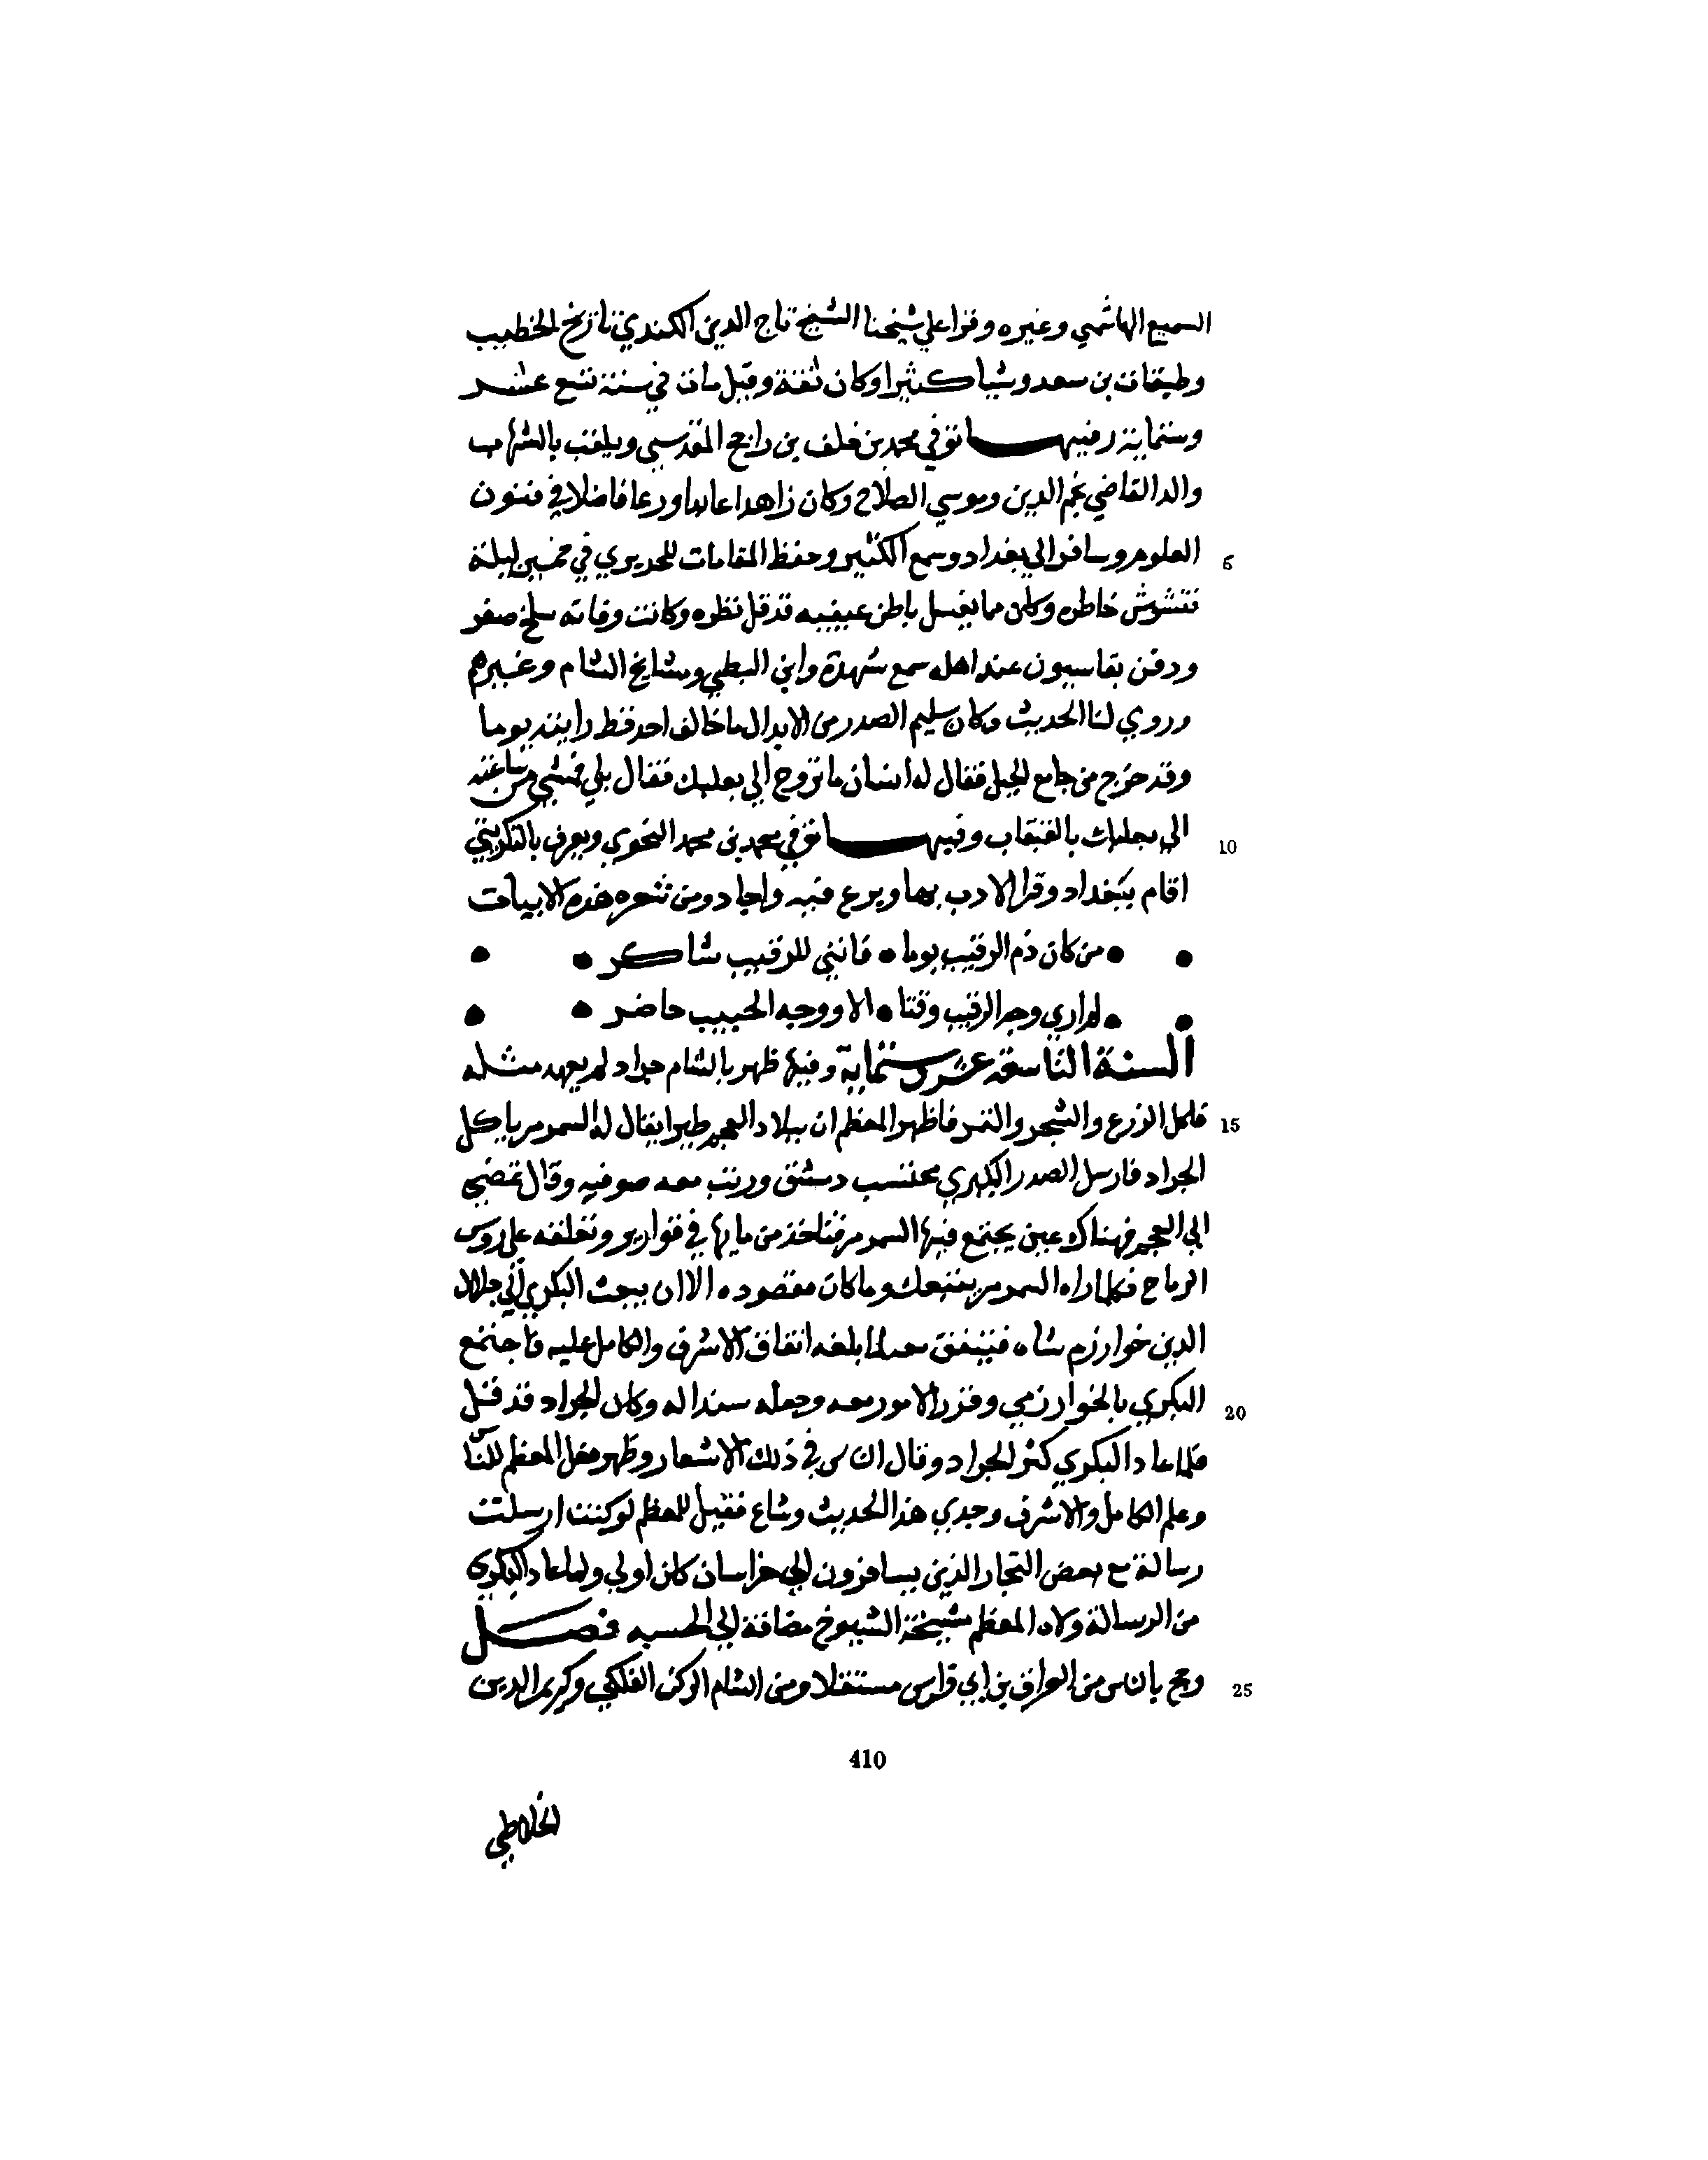 السميع الهاشمي وغيره وقرا علي شيخنا الشيخ تاج الدين الكندي تاريخ الخطيب
وطبقات بن سعد وشيا كثيرا وكان ثقة وقيل مات في سنة تسع عشر
وستماية وفيها توفي محمد بن خلف بن راجح المقدسي ويلقب بالشهاب
والد القاضي نجم الدين وموسي الصلاح وكان زاهدا عابدا ورعا فاضلا في فنون
5 العلوم وسافر الي بغداد وسمع الكثير وحفظ المقامات للحريري في خمسين ليلة
فتشوش خاطره وكان مما يغسل باطن عينيه قد قل نظره وكانت وفاته سلخ صفر
ودفن بقاسيون عند اهله سمع شهدة وابن البطي ومشايخ الشام وغيرهم
وروي لنا الحديث وكان سليم الصدر من الابدال ما خالف احد قط رايته يوما
وقد خرج من جامع الجبل فقال له انسان ما تروح الي بعلبك فقال بلي فمشي من ساعته
10 الي بعلبك بالقبقاب وفيها توفي محمد بن محمد النحوي ويعرف بالتكريتي
اقام ببغداد وقرا الادب بها وبرع فيه واجاد ومن شعره هذه الابيات
• • من كان ذم الرقيب يوما • فانني للرقيب شاكر • •
• • لم اري وجه الرقيب وقتا • الا ووجه الحبيب حاضر • •
السنة التاسعة عشر وستماية وفيها ظهر بالشام جراد لم يعهد مثله
15 فاكل الزرع والشجر والثمر فاظهر المعظم ان ببلاد العجم طيرا يقال له السمرمر ياكل
الجراد فارسل الصدر البكري محتسب دمشق ورتب معه صوفيه وقال تمضي
الي العجم فهناك عين يجتمع فيها السمرمر فتاخذ من مايها في قوارير وتعلقه علي روس
الرماح فكلما راه السمرمر يتبعك وما كان مقصوده الا ان يبعث البكري الي جلال
الدين خوارزم شاه فيتفق معه لما بلغه اتفاق الاشرف والكامل عليه فاجتمع
20 البكري بالخوارزمي وقرر الامور معه وجعله سندا له وكان الجراد قد قل
فلما عاد البكري كثر الجراد وقال الناس في ذلك الاشعار وظهر فعل المعظم للناس
وعلم الكامل والاشرف وجدي هذا الحديث وشاع فقيل للمعظم لو كنت ارسلت
رسالة مع بعض التجار الذين يسافرون الي خراسان كان اولي ولما عاد البكري
من الرسالة ولاه المعظم مشيخة الشيوخ مضافة الي الحسبه فصل
25 وحج بالناس من العراق بن ابي فراس مستقلا ومن الشام الركن الفلكي وكريم الدين
410
الخلاطي